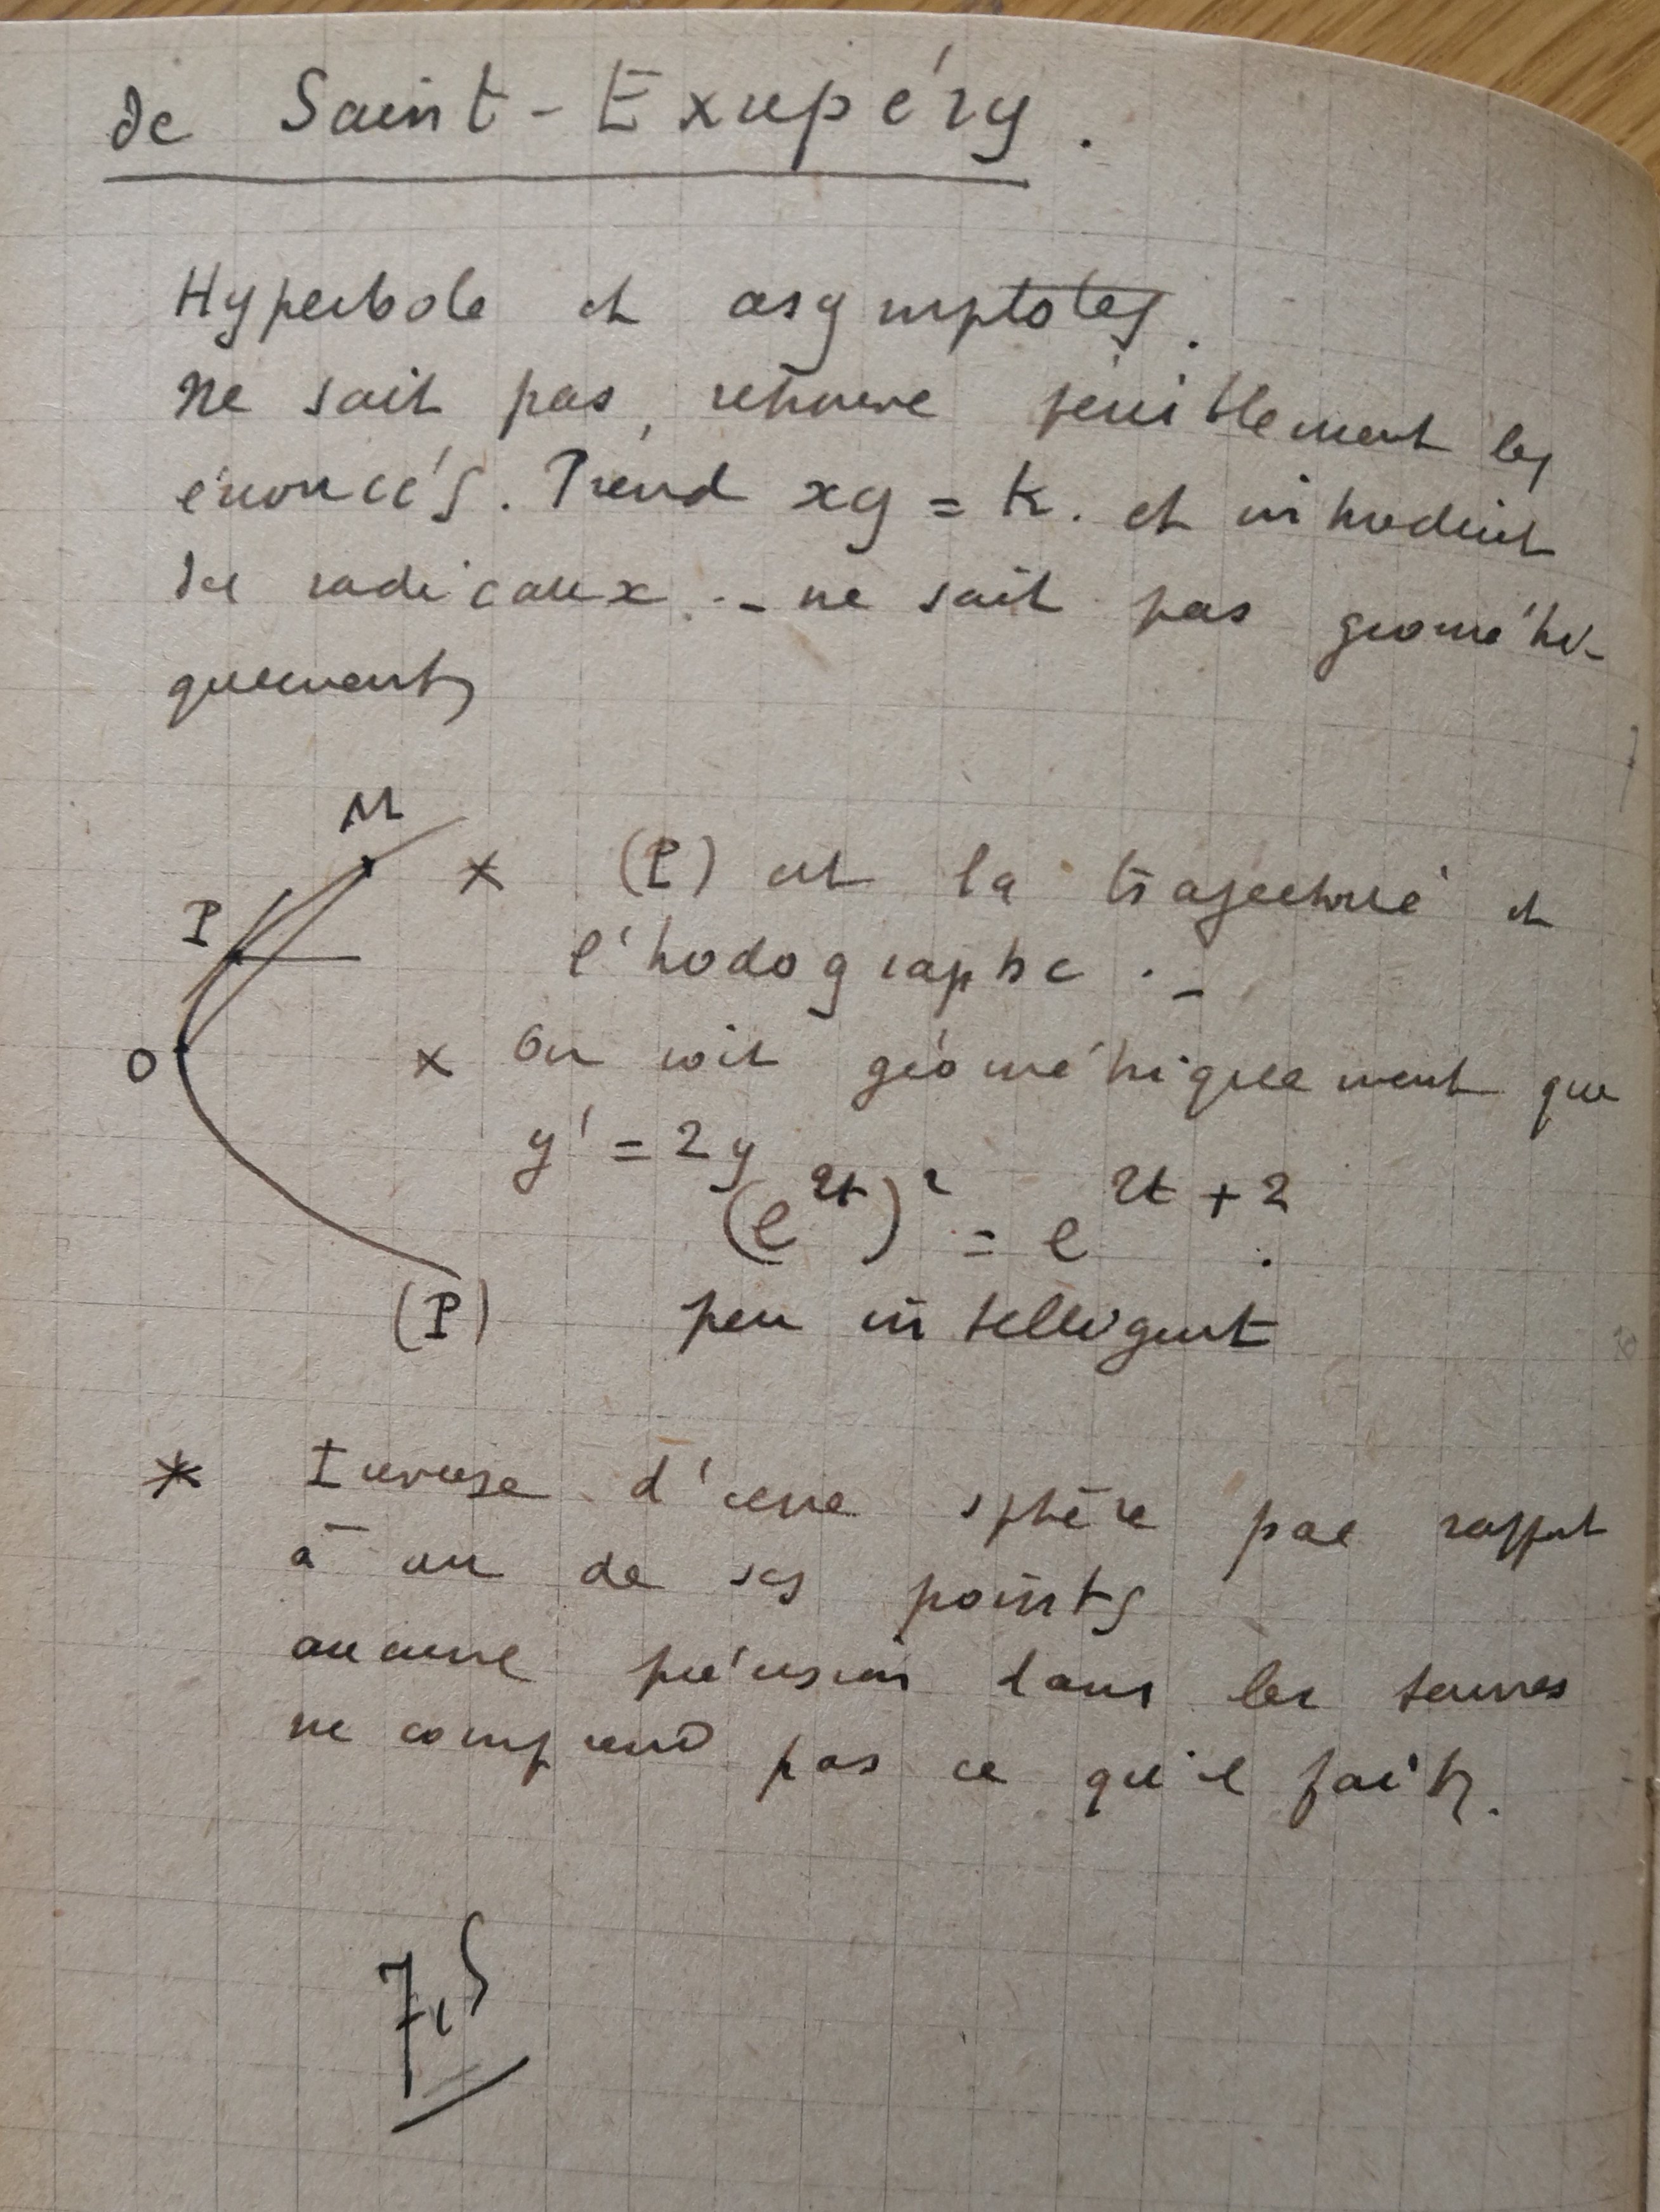 de Saint-Exupéry.
Hyperbole et asymptotes.
Ne sait pas, retrouve péniblement les
énoncés. Prend xy = k. et introduit
des radicaux. - ne sait pas géométri-
quement
M
P
O
x (P) est la trajectoire et
l'hodographe. -
x On voit géométriquement que
y' = 2y
(e^{2t})² = e^{2t + 2}.
(P) peu intelligent
* Inverse d'une sphère par rapport
à un de ses points
aucune précision dans les termes
ne comprend pas ce qu'il fait.
7,5